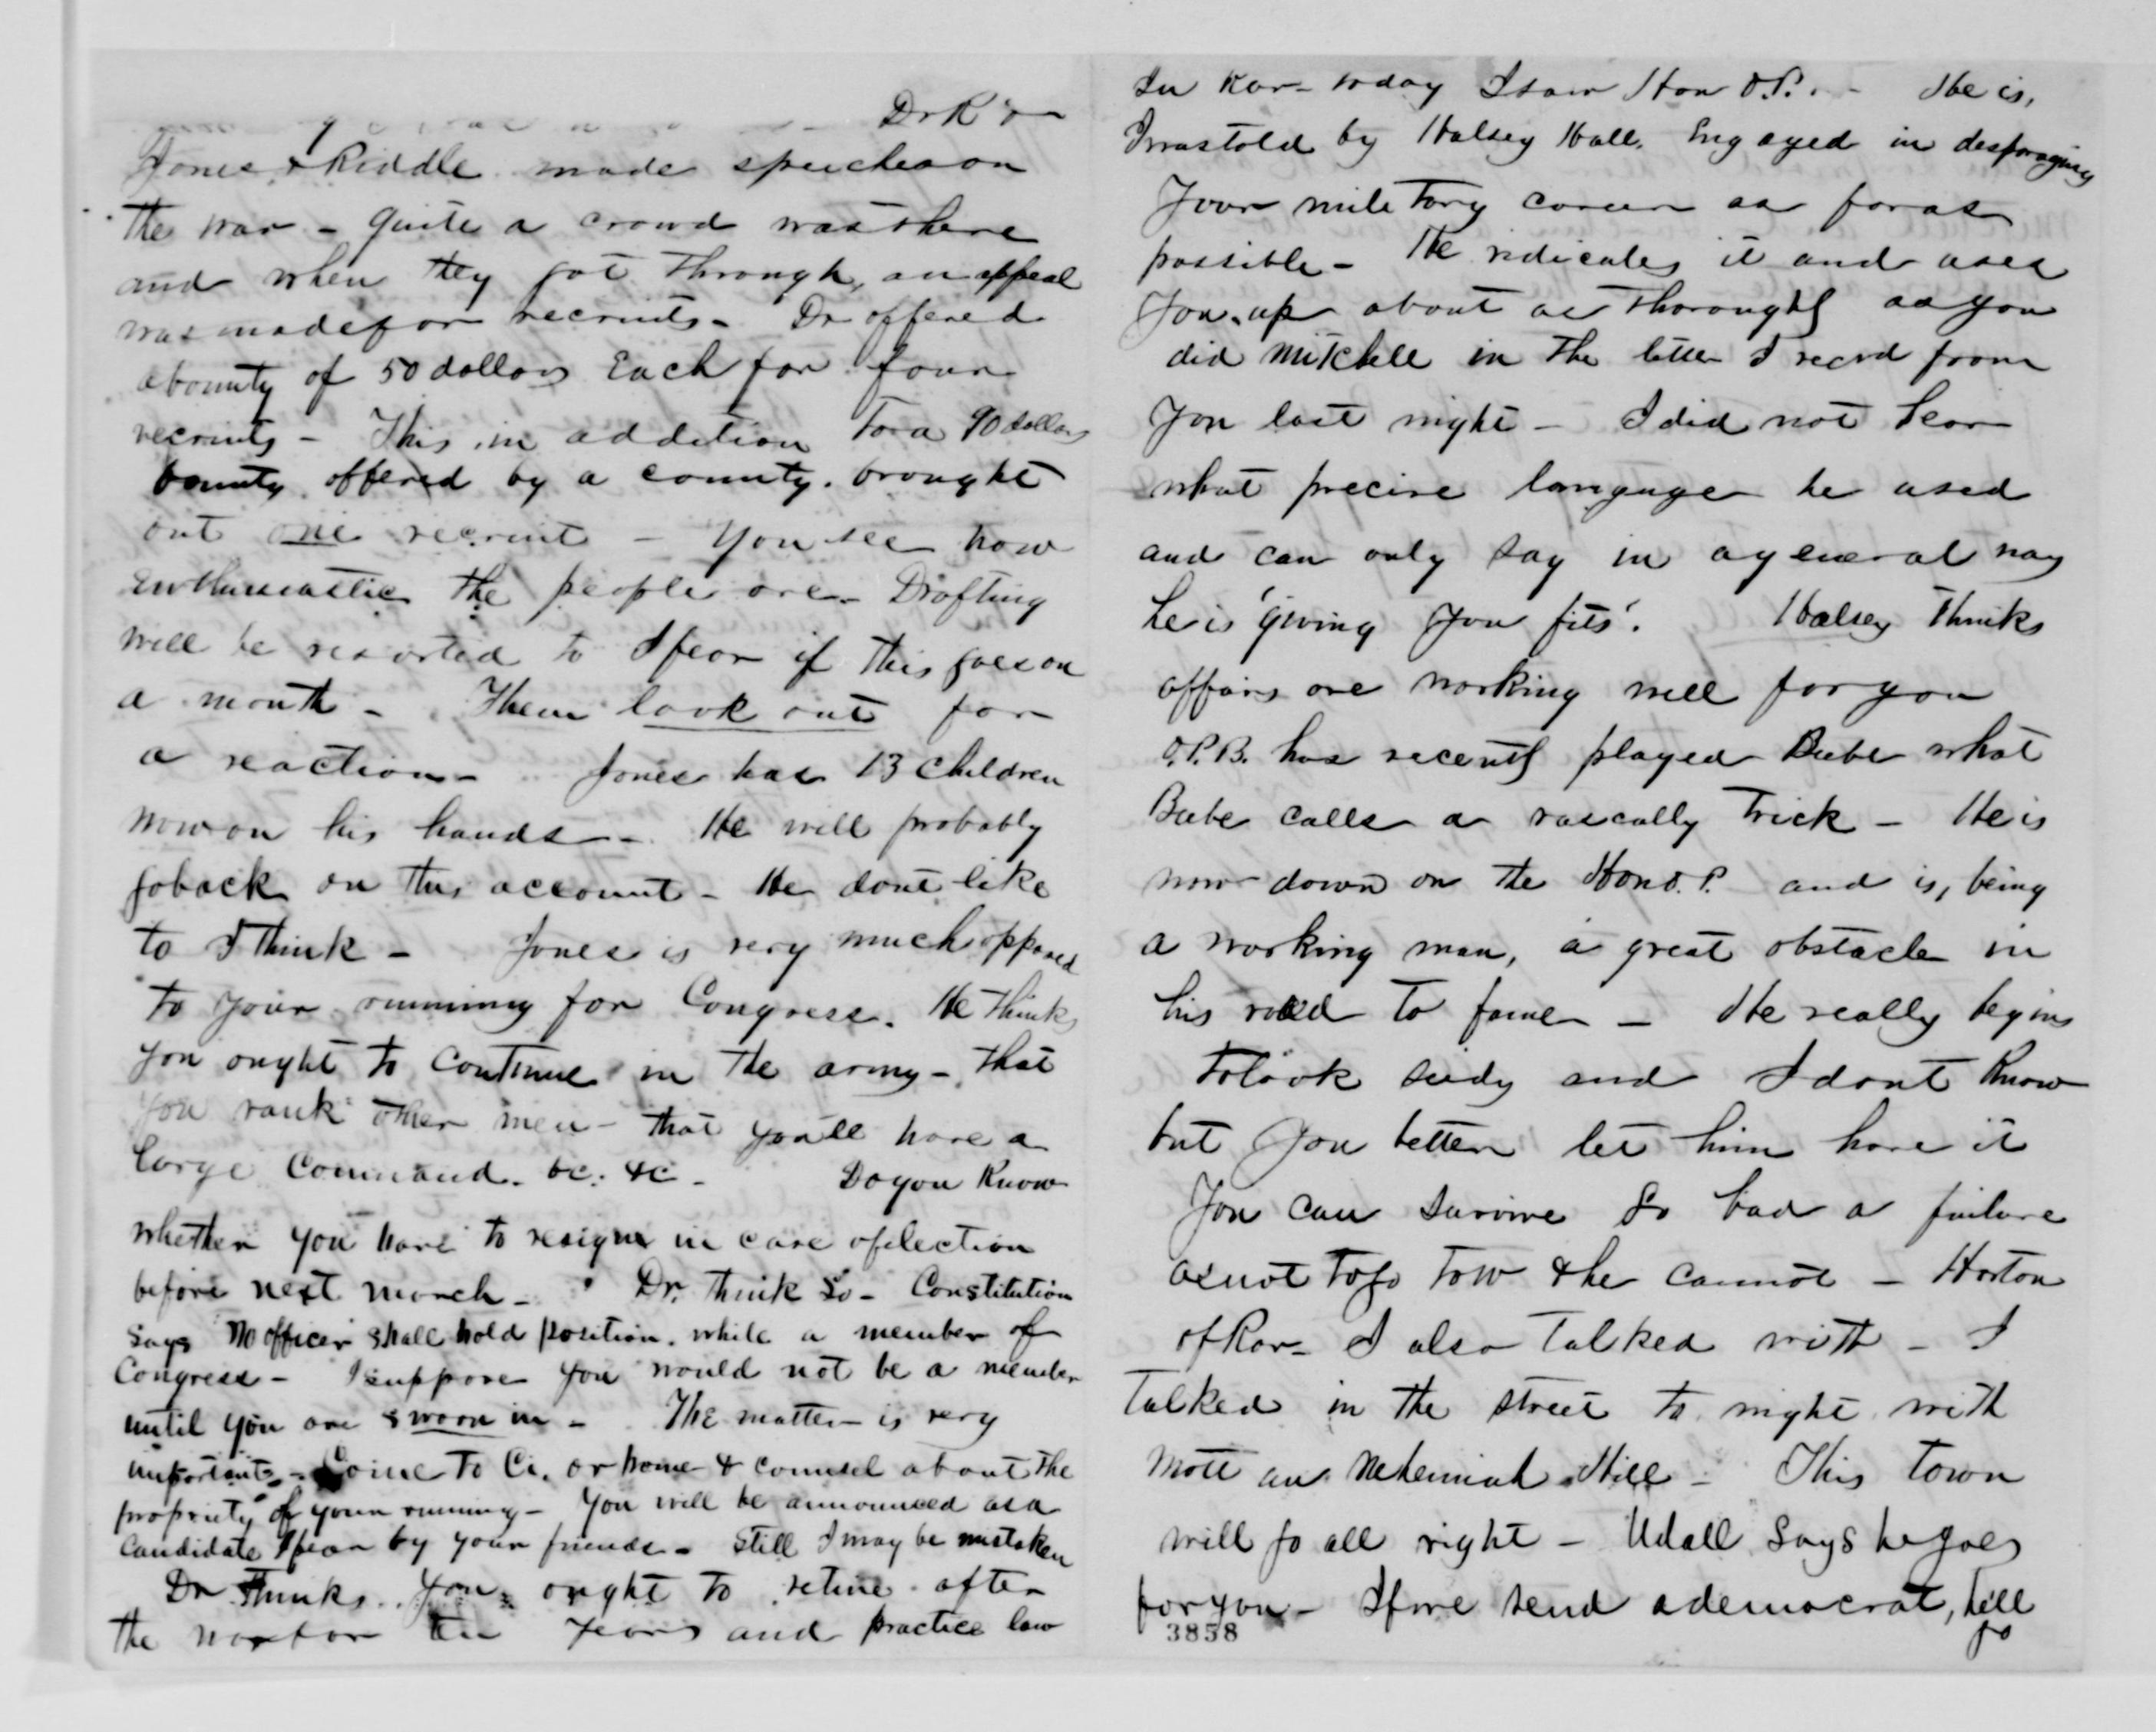 Dr R &
Jones & Riddle made speeches on
the war - Quite a crowd was there
and when they got through, an appeal
was made for recruits - Dr offered
a bounty of 50 dollars Each for four
recruits - This in addition to a 90 dollars
bounty offered by a county. brought
out one recruit - You see how
enthusiastic the people are - Drafting
will be resorted to I fear if this goes on
a month - Then look out for
a reaction - Jones has 13 children
now on his hands - He will probably
go back on this account - He dont like
to I think - Jones is very much opposed
to your running for Congress. He thinks
you ought to continue in the army - that
you rank other men - that you'll have a
large command. &c. &c - Do you Know
whether you have to resign in case of election
before next march - Dr. think so - Constitution
says No officer shall hold position. while a member of
Congress - I suppose you would not be a member
until you are sworn in - The matter is very
important - Come to Ci. or home & counsel about the
propriety of your running - You will be announced as a
candidate I fear by your friends - Still I may be mistaken
Dr. Thinks you ought to retire after
the war for ten years and practice law
In Rav- today I saw Hon O.P. - He is,
I was told by Halsey Hall. Engaged in desparaging
Your miletary career as far as
possible - He ridicules it and uses
you up about as thoroughly as you
did Mitchell in the letter I recvd from
you last night - I did not hear
what precise language he used
and can only say in a general way
he is 'giving you fits'. Halsey Thinks
affairs are working well for you
O.P.B. has recently played Beebe what
Beebe calls a rascally trick - He is
now down on the Hon O.P. and is, being
a working man, a great obstacle in
his road to fame - He really begins
to look seedy and I dont Know
but you better let him have it
You can survive so bad a failure
as not to go to W & he cannot - Horton
of Rav - I also talked with - I
talked in the street to night with
Mott an Nehemiah Hill - This town
will go all right - Udall says he goes
for you - If we send a democrat, he'll
go
3858